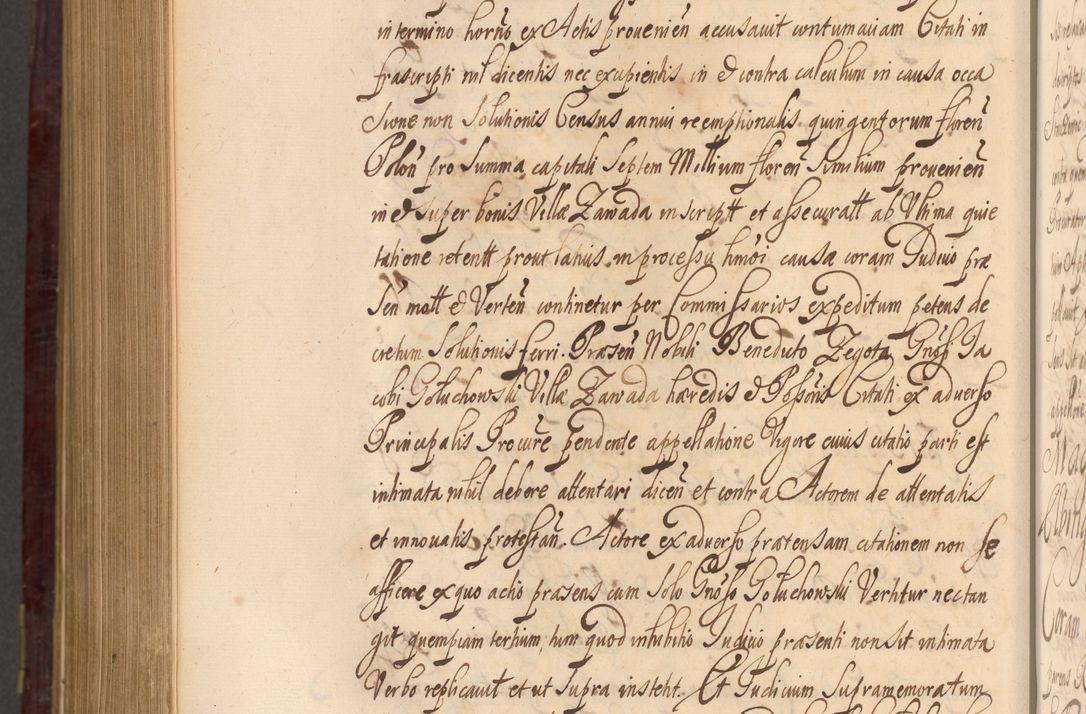 in termino horño ex Actis provenieñ accusavit contumaciam Citati in
frascripti nil dicentis nec excipientis in & contra calculum in causa occa
sione non Solutionis Census annui reemptionalis quingentorum floreñ
Poloñ pro Summa capitali Septem Millium floreñ Similium provenieñ
in & super bonis Villæ Zawada inscriptt et assecuratt ab Ultima quie
tatione retentt prout latius in processu hmõi causa coram Judicio præ
señ mott & Verteñ continetur per Commissarios expeditum petens de
cretum Solutionis ferri. Præseñ Nobili Benedicto Zegota Gnosi Ja
cobi Goluchowski Villæ Zawada hæredis & Possoris Citati ex adverso
Principalis Procure pendente appellatione Vigore cuius citatio parti est
intimata nihil debere attentari diceñ et contra Actorem de attentatis
et innovatis protestañ. Actore ex adverso prætensam citationem non se
afficere ex quo actio præsens cum Solo Gnoso Goluchowski Vertitur nec tan
git quempiam tertium, tum quod inhibitio Judicio præsenti non sit intimata
Verbo replicavit et ut Supra institit. Et Judicium Supramemoratum